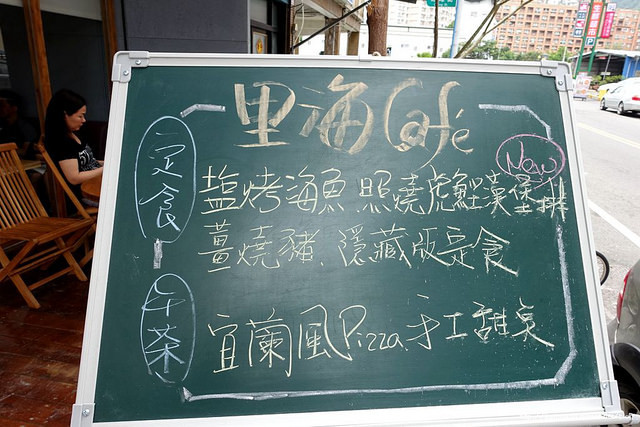 里海Café
New
定食
塩烤海魚 照燒虎鰹漢堡排
薑燒豬、隱藏版定食
午茶
宜蘭風Pizza、手工甜臭